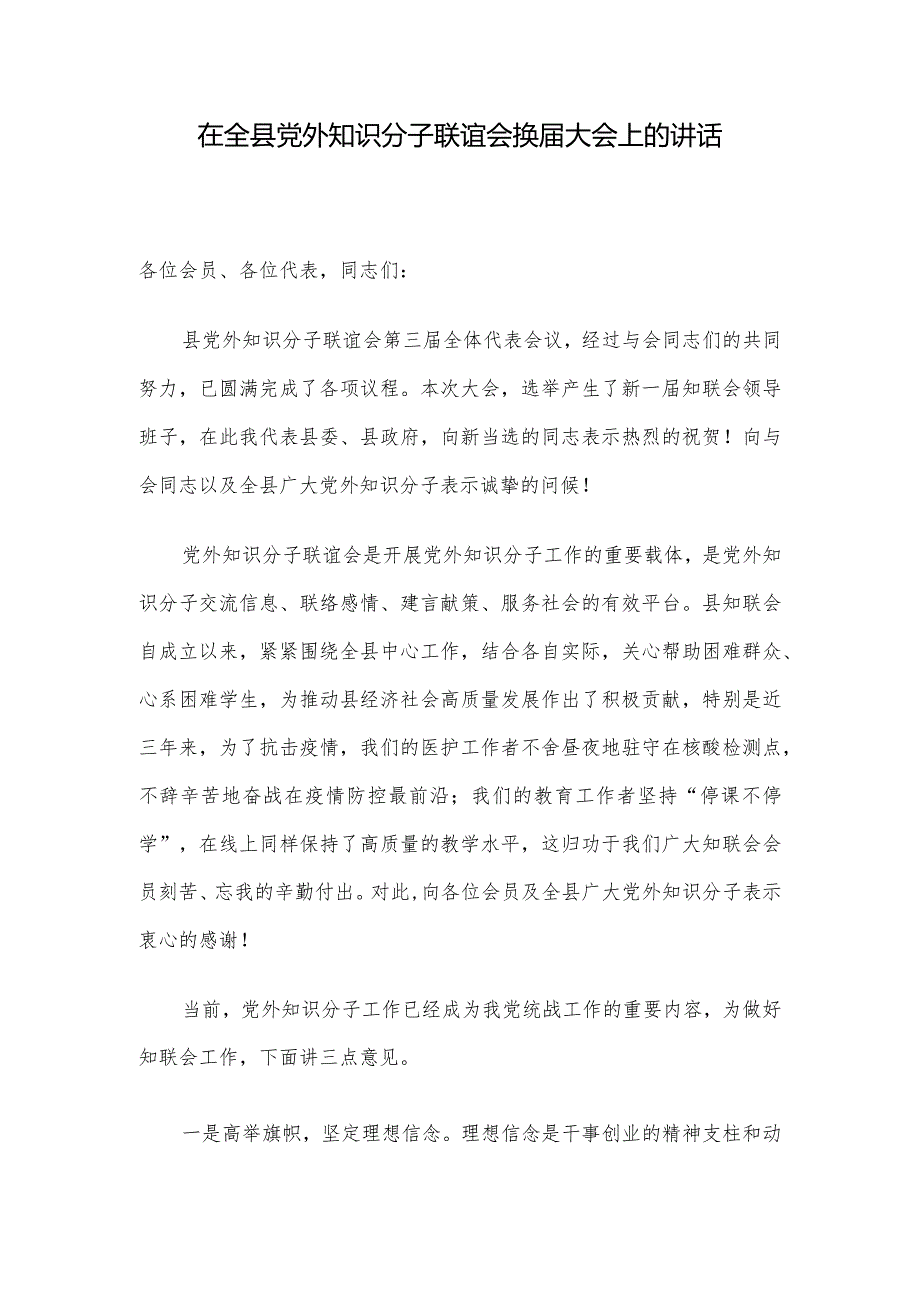 在全县党外知识分子联谊会换届大会上的讲话
各位会员、各位代表，同志们：
县党外知识分子联谊会第三届全体代表会议，经过与会同志们的共同
努力，已圆满完成了各项议程。本次大会，选举产生了新一届知联会领导
班子，在此我代表县委、县政府，向新当选的同志表示热烈的祝贺！向与
会同志以及全县广大党外知识分子表示诚挚的问候！
党外知识分子联谊会是开展党外知识分子工作的重要载体，是党外知
识分子交流信息、联络感情、建言献策、服务社会的有效平台。县知联会
自成立以来，紧紧围绕全县中心工作，结合各自实际，关心帮助困难群众、
心系困难学生，为推动县经济社会高质量发展作出了积极贡献，特别是近
三年来，为了抗击疫情，我们的医护工作者不舍昼夜地驻守在核酸检测点，
不辞辛苦地奋战在疫情防控最前沿；我们的教育工作者坚持“停课不停
学”，在线上同样保持了高质量的教学水平，这归功于我们广大知联会会
员刻苦、忘我的辛勤付出。对此，向各位会员及全县广大党外知识分子表示
衷心的感谢！
当前，党外知识分子工作已经成为我党统战工作的重要内容，为做好
知联会工作，下面讲三点意见。
一是高举旗帜，坚定理想信念。理想信念是干事创业的精神支柱和动